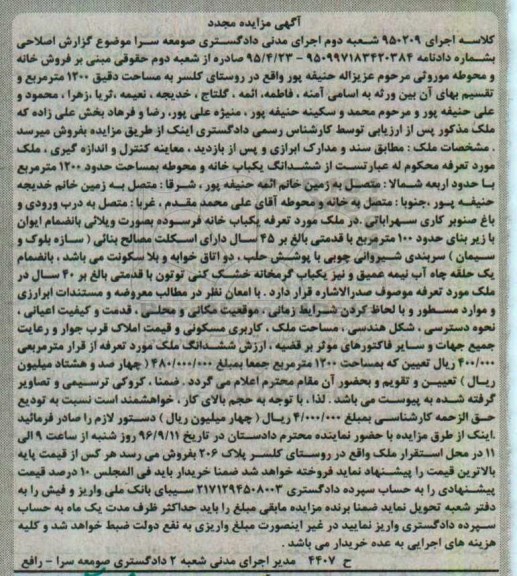 آگهی مزایده مجدد
کلاسه اجرای ۹۵۰۲۰۹ شعبه دوم اجرای مدنی دادگستری صومعه سرا موضوع گزارش اصلاحی
بشماره دادنامه ۹۵۰۹۹۷۱۸۳۴۲۰۳۸۴ - ۹۵/۴/۲۳ صادره از شعبه دوم حقوقی مبنی بر فروش خانه
و محوطه موروثی مرحوم عزیزاله حنیفه پور واقع در روستای کلسر به مساحت دقیق ۱۲۰۰ مترمربع و
تقسیم بهای آن بین ورثه به اسامی آمنه ، فاطمه، ائمه ، گلتاج ، خدیجه ، نعیمه ،ثریا ،زهرا ، محمود و
علی حنیفه پور و مرحوم محمد و سکینه حنیفه پور ، منیژه علی پور، رضا و فرهاد بخش علی زاده که
ملک مذکور پس از ارزیابی توسط کارشناس رسمی دادگستری اینک از طریق مزایده بفروش میرسد
. مشخصات ملک : مطابق سند و مدارک ابرازی و پس از بازدید ، معاینه کنترل و اندازه گیری ، ملک
مورد تعرفه محکوم له عبارتست از ششدانگ یکباب خانه و محوطه بمساحت حدود ۱۲۰۰ مترمربع
با حدود اربعه شمالا : متصل به زمین خانم ائمه حنیفه پور ، شرقا : متصل به زمین خانم خدیجه
حنیفه پور ،جنوبا : متصل به خانه و محوطه آقای علی محمد مقدم ، غربا : متصل به درب ورودی و
باغ صنوبر کاری سهراباتی .در ملک مورد تعرفه یکباب خانه فرسوده بصورت ویلائی بانضمام ایوان
با زیر بنای حدود ۱۰۰ مترمربع با قدمتی بالغ بر ۴۵ سال دارای اسکلت مصالح بنائی ( سازه بلوک و
سیمان ) سربندی شیروانی چوبی با پوشش حلب ، دو اتاق خوابه و بلا سکونت می باشد ، بانضمام
یک حلقه چاه آب نیمه عمیق و نیز یکباب گرمخانه خشک کنی توتون با قدمتی بالغ بر ۴۰ سال در
ملک مورد تعرفه موصوف صدرالاشاره قرار دارد . با امعان نظر در مطالب معروضه و مستندات ابرازی
و موارد مسطور و با لحاظ کردن شرایط زمانی ، موقعیت مکانی و محلی ، قدمت و کیفیت اعیانی ،
نحوه دسترسی ، شکل هندسی ، مساحت ملک ، کاربری مسکونی و قیمت املاک قرب جوار و رعایت
جمیع جهات و سایر فاکتورهای موثر بر قضیه ، ارزش ششدانگ ملک مورد تعرفه از قرار مترمربعی
۴۰۰/۰۰۰ ریال تعیین که بمساحت ۱۲۰۰ مترمربع جمعا بمبلغ ۴۸۰/۰۰۰/۰۰۰ ( چهار صد و هشتاد میلیون
ریال ) تعیین و تقویم و بحضور آن مقام محترم اعلام می گردد . ضمنا ، کروکی ترسیمی و تصاویر
گرفته شده به پیوست می باشد . لذا ، با توجه به حجم بالای کار ، خواهشمند است نسبت به تودیع
حق الزحمه کارشناسی بمبلغ ۴/۰۰۰/۰۰۰ ریال ( چهار میلیون ریال ) دستور لازم را صادر فرمائید
.اینک از طرق مزایده با حضور نماینده محترم دادستان در تاریخ ۹۶/۹/۱۱ روز شنبه از ساعت ۹ الی
۱۱ در محل استقرار ملک واقع در روستای کلسر پلاک ۲۰۶ بفروش می رسد هر کس از قیمت پایه
بالاترین قیمت را پیشنهاد نماید فروخته خواهد شد ضمنا خریدار باید فی المجلس ۱۰ درصد قیمت
پیشنهادی را به حساب سپرده دادگستری ۲۱۷۱۲۹۴۵۰۸۰۰۳ سیبای بانک ملی واریز و فیش را به
دفتر شعبه تحویل نماید ضمنا برنده مزایده مابقی مبلغ را باید حداکثر ظرف مدت یک ماه به حساب
سپرده دادگستری واریز نمایید در غیر اینصورت مبلغ واریزی به نفع دولت ضبط خواهد شد و کلیه
هزینه های اجرایی به عده خریدار می باشد .
ح ۴۴۰۷ مدیر اجرای مدنی شعبه ۲ دادگستری صومعه سرا - رافع